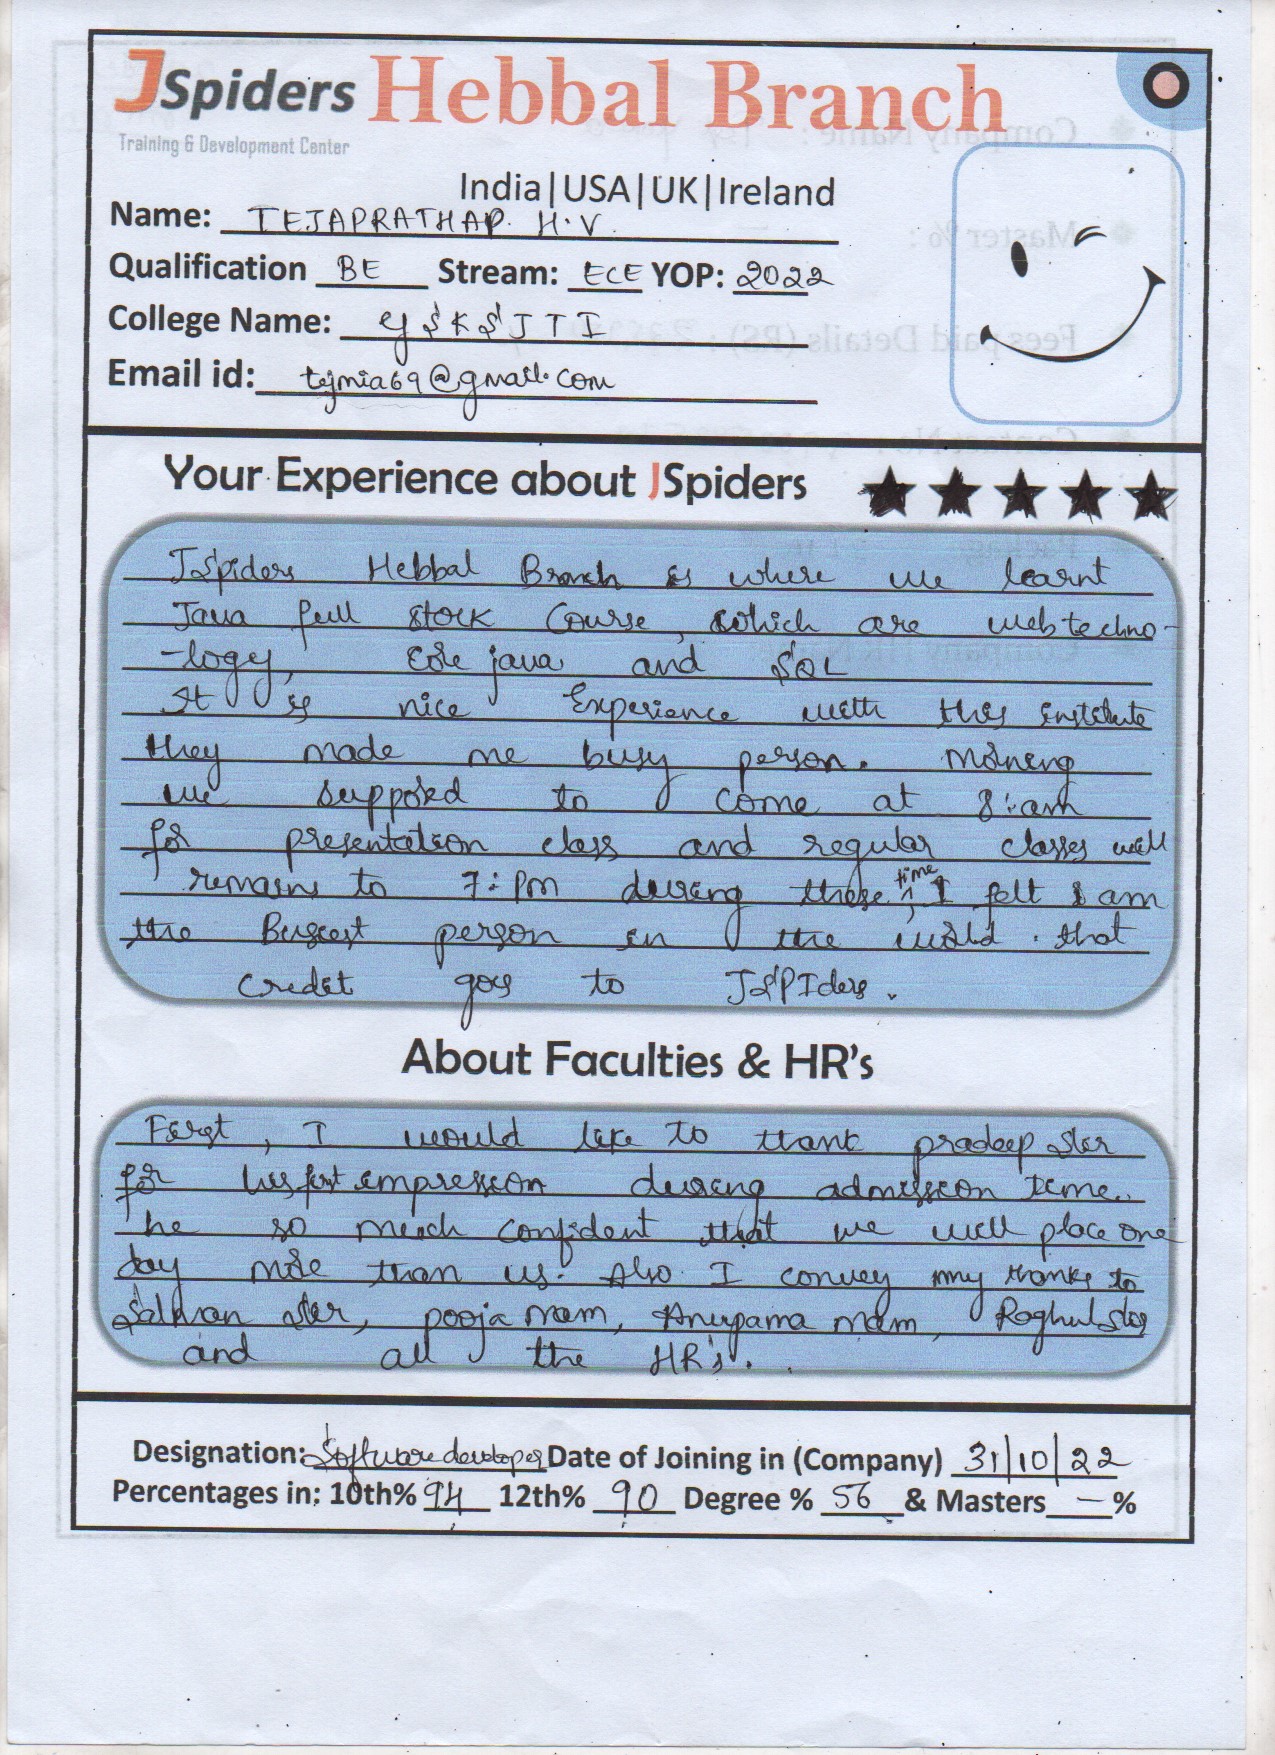 JSpiders Hebbal Branch
Training & Development Center
India|USA|UK|Ireland
Name: TEJAPRATHAP. H.V
Qualification BE Stream: ECE YOP: 2022
College Name: SKSJTI
Email id: tejmia69@gmail.com
Your Experience about JSpiders
JSpiders Hebbal Branch is where we learnt
Java full stack Course, which are web techno-
-logy, Core java and SQL
It is nice Experience with this institute
they made me busy person. Morning
we supposed to come at 8:am
for presentation class and regular classes will
remains to 7:PM during these time, I felt I am
the Busiest person in the world. that
credit goes to JSPIders.
About Faculties & HR's
First, I would like to thank pradeep Sir
for his first impression during admission time.
he so much confident that we will place one
day more than us. Also I convey my thanks to
Salman Sir, pooja mam, Anupama mam, Raghul Sir
and all the HR's.
Designation: Software developer Date of Joining in (Company) 31/10/22
Percentages in: 10th% 94 12th% 90 Degree % 56 & Masters - %